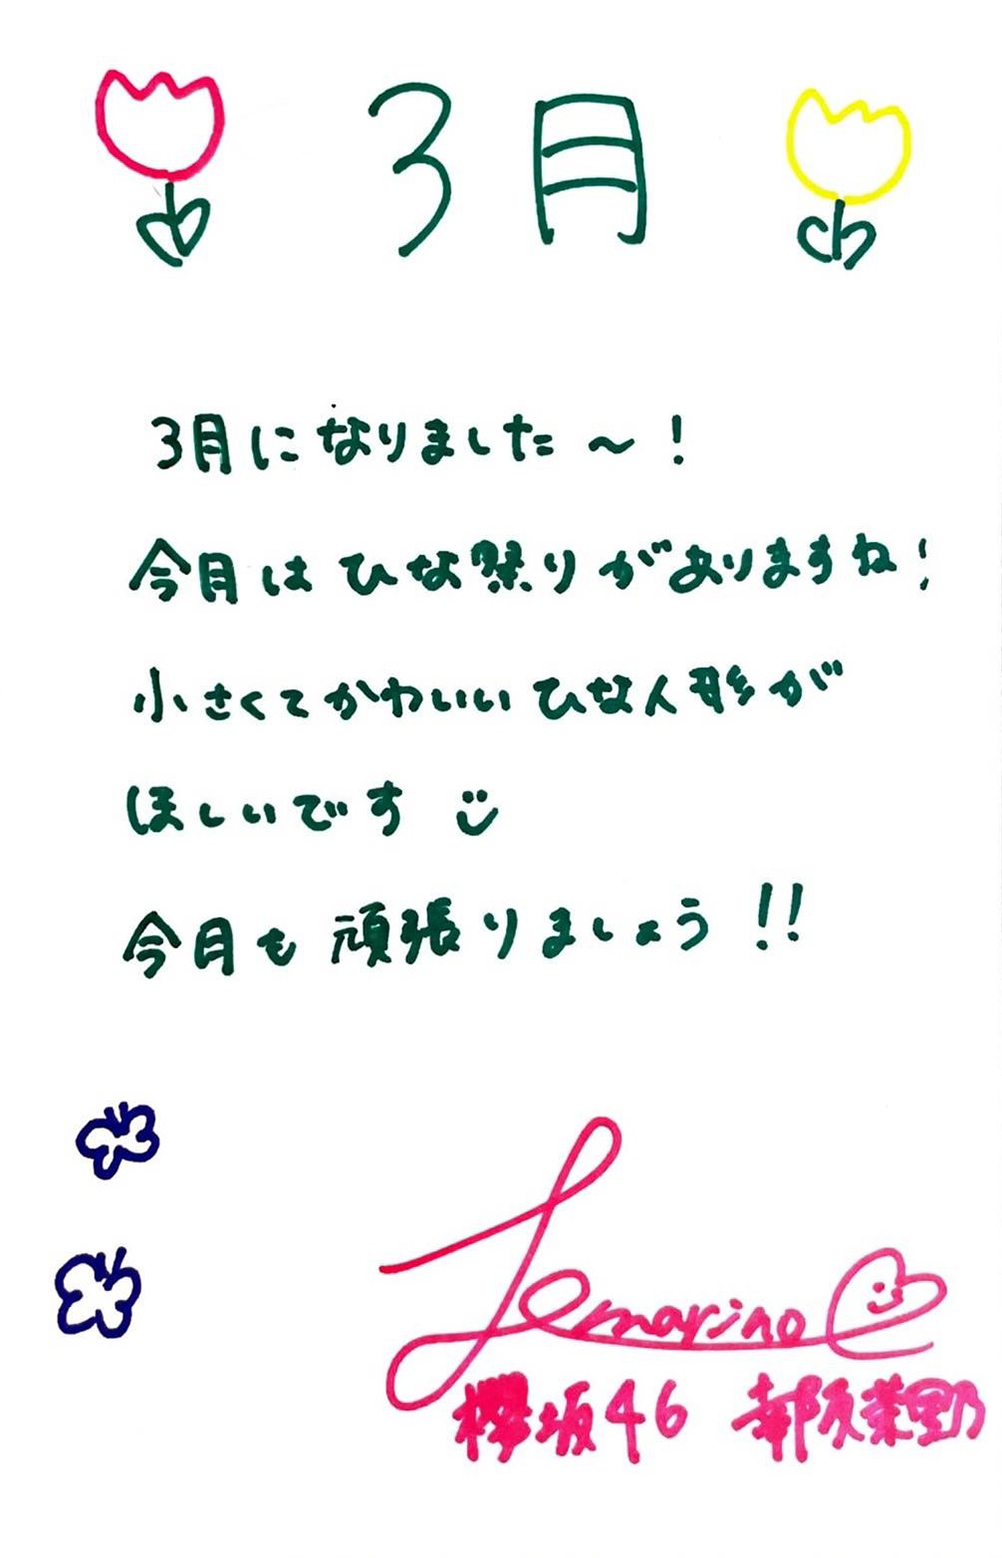 3月
3月になりました〜!
今月はひな祭りがありますね!
小さくてかわいいひな人形が
ほしいです
今月も頑張りましょう!!
欅坂46